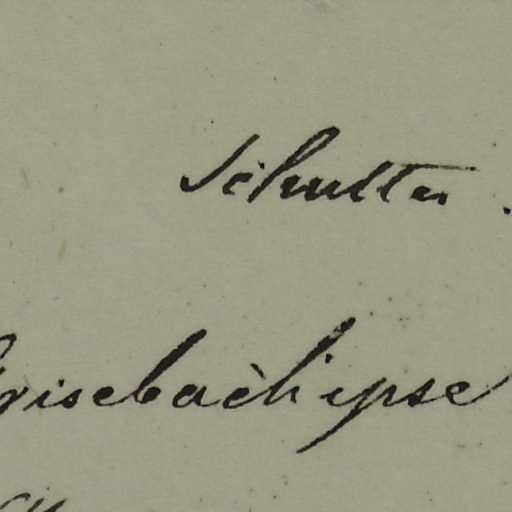 Schultes.
Grisebach ipse